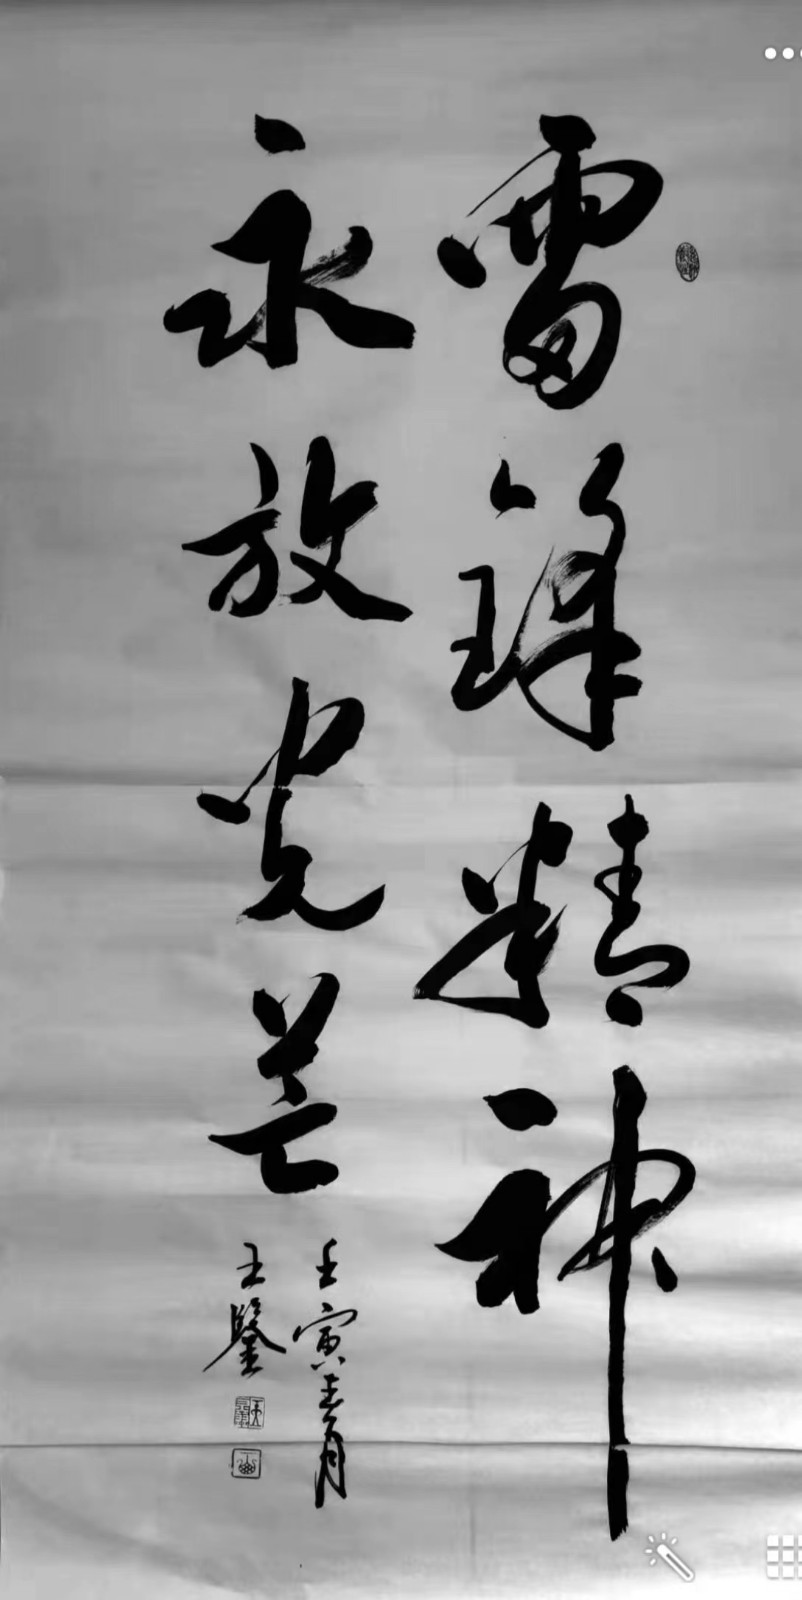 雷锋精神
永放光芒
壬寅春月
王鑒